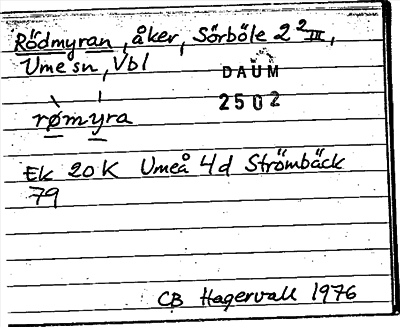 Rödmyran, åker, Sörböle 2 2 III,
Ume sn, Vbl
DAUM
2502
rømyra
Ek 20 K Umeå 4d Strömbäck
79
CB Hagervall 1976